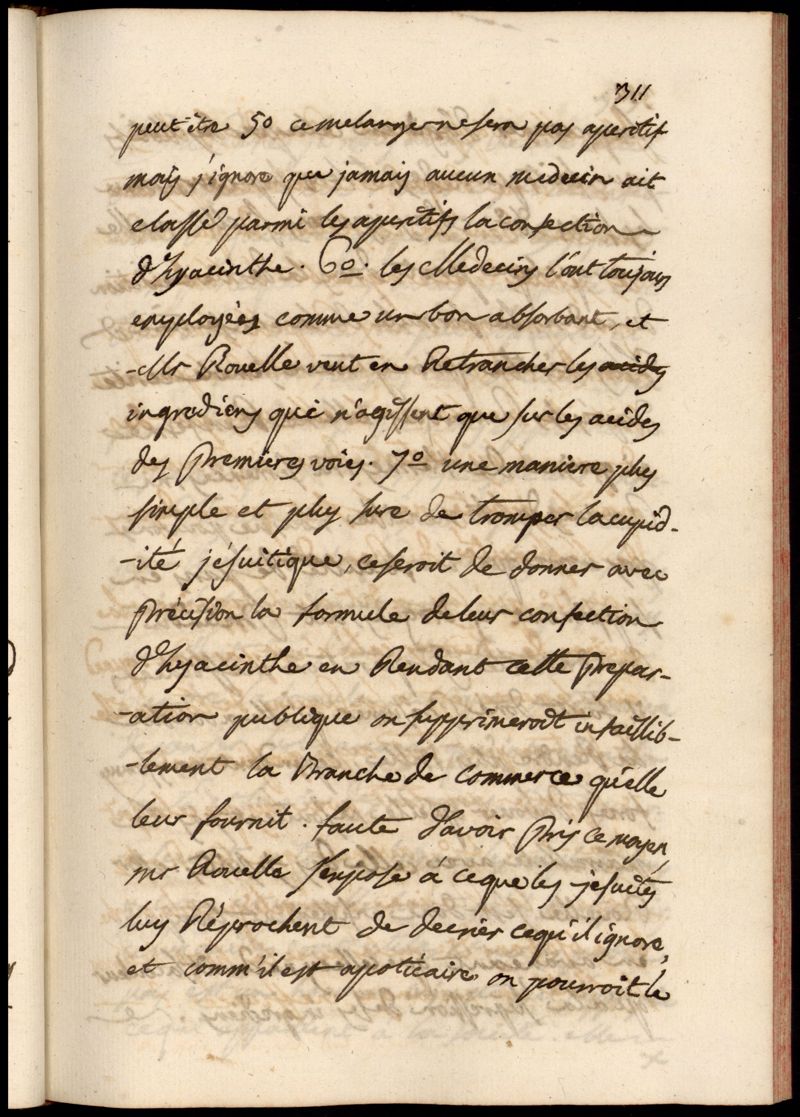 311
peut être 5o ce melange ne sera pas aperitif
mais j'ignore que jamais aucun medecin ait
classé parmi les aperitifs la confection
d'hyacinthe. 6o. les Medecins l'ont toujours
employées comme un bon absorbant, et
-Mr Rouelle veut en Retrancher les acides
ingrediens qui n'agissent que sur les acides
des premieres voies. 7o une maniere plus
simple et plus sure de tromper la cupid-
-ité jésuitique, ce seroit de donner avec
précision la formule de leur confection
d'hyacinthe en Rendant cette prepar-
-ation publique on supprimeroit infaillib-
-lement la Branche de commerce qu'elle
leur fournit. faute d'avoir pris ce moyen,
mr Rouelle s'expose á ce que les jesuites
luy Réprochent de decrier ce qu'il ignore,
et comm'il est apoticaire on pourroit le